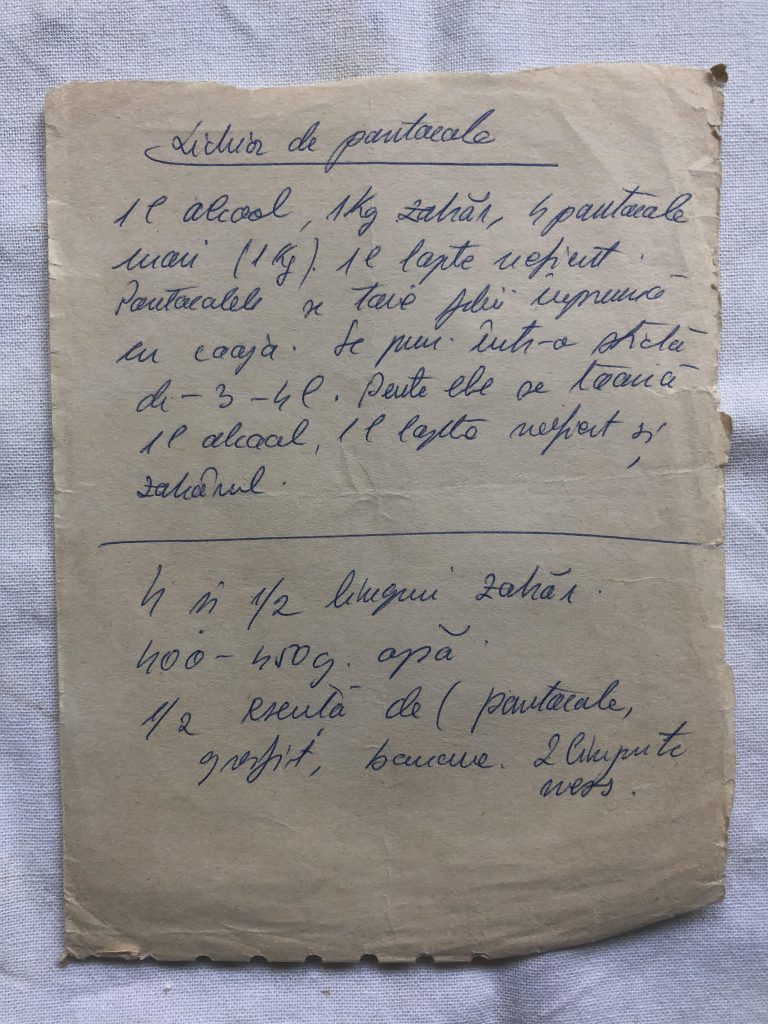 Lichior de portocale
1 l alcool, 1 Kg zahăr, 4 portocale
mari (1 Kg). 1 l lapte nefiert.
Portocalele se taie felii împreună
cu coaja. Se pun într-o sticlă
de - 3 - 4 l. Peste ele se toarnă
1 l alcool, 1 l lapte nefiert și
zahărul.
4 și 1/2 linguri zahăr.
400 - 450 g. apă.
1/2 esență de (portocale,
grefut, banane. 2 lingurite
ness.